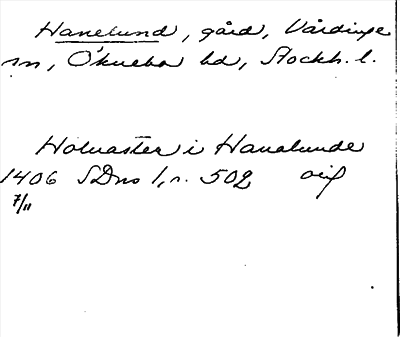 Hanelund, gård, Vårdinge
sn, Öknebo hd, Stockh. l.
Holuaster i Hanalunde
1406 SDns 1, s. 502 oif
7/11